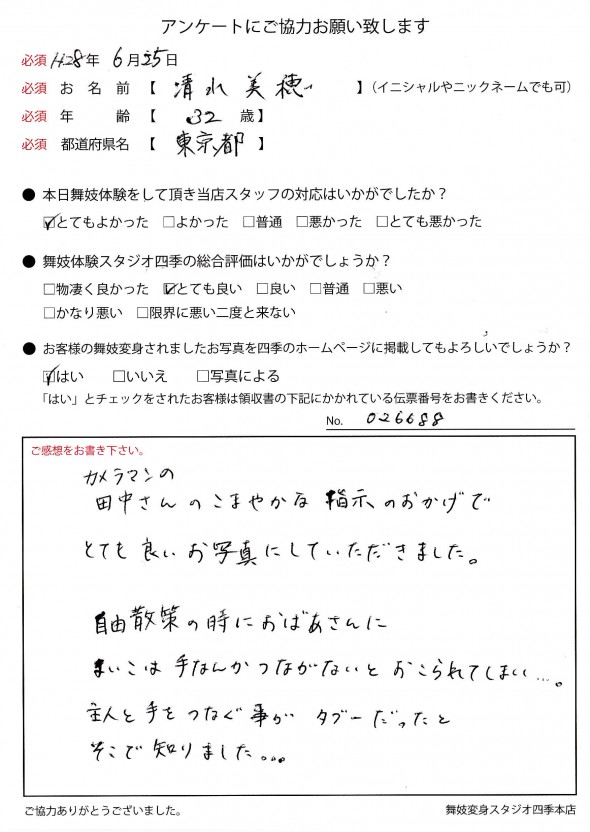 アンケートにご協力お願い致します
必須 H28年 6月25日
必須 お名前 【 清水 美穂 】(イニシャルやニックネームでも可)
必須 年齢 【 32 歳】
必須 都道府県名 【 東京都 】
● 本日舞妓体験をして頂き当店スタッフの対応はいかがでしたか?
☑とてもよかった □よかった □普通 □悪かった □とても悪かった
● 舞妓体験スタジオ四季の総合評価はいかがでしょうか?
□物凄く良かった ☑とても良い □良い □普通 □悪い
□かなり悪い □限界に悪い二度と来ない
● お客様の舞妓変身されましたお写真を四季のホームページに掲載してもよろしいでしょうか?
☑はい □いいえ □写真による
「はい」とチェックをされたお客様は領収書の下記にかかれている伝票番号をお書きください。
No. 026688
ご感想をお書き下さい。
カメラマンの
田中さんのこまやかな 指示、のおかげで
とても良いお写真にしていただきました。
自由散策の時におばあさんに
まいこは手なんかつながないと おこられてしまい…。
主人と手をつなぐ事が タブーだったと
そこで知りました...。
ご協力ありがとうございました。
舞妓変身スタジオ四季本店